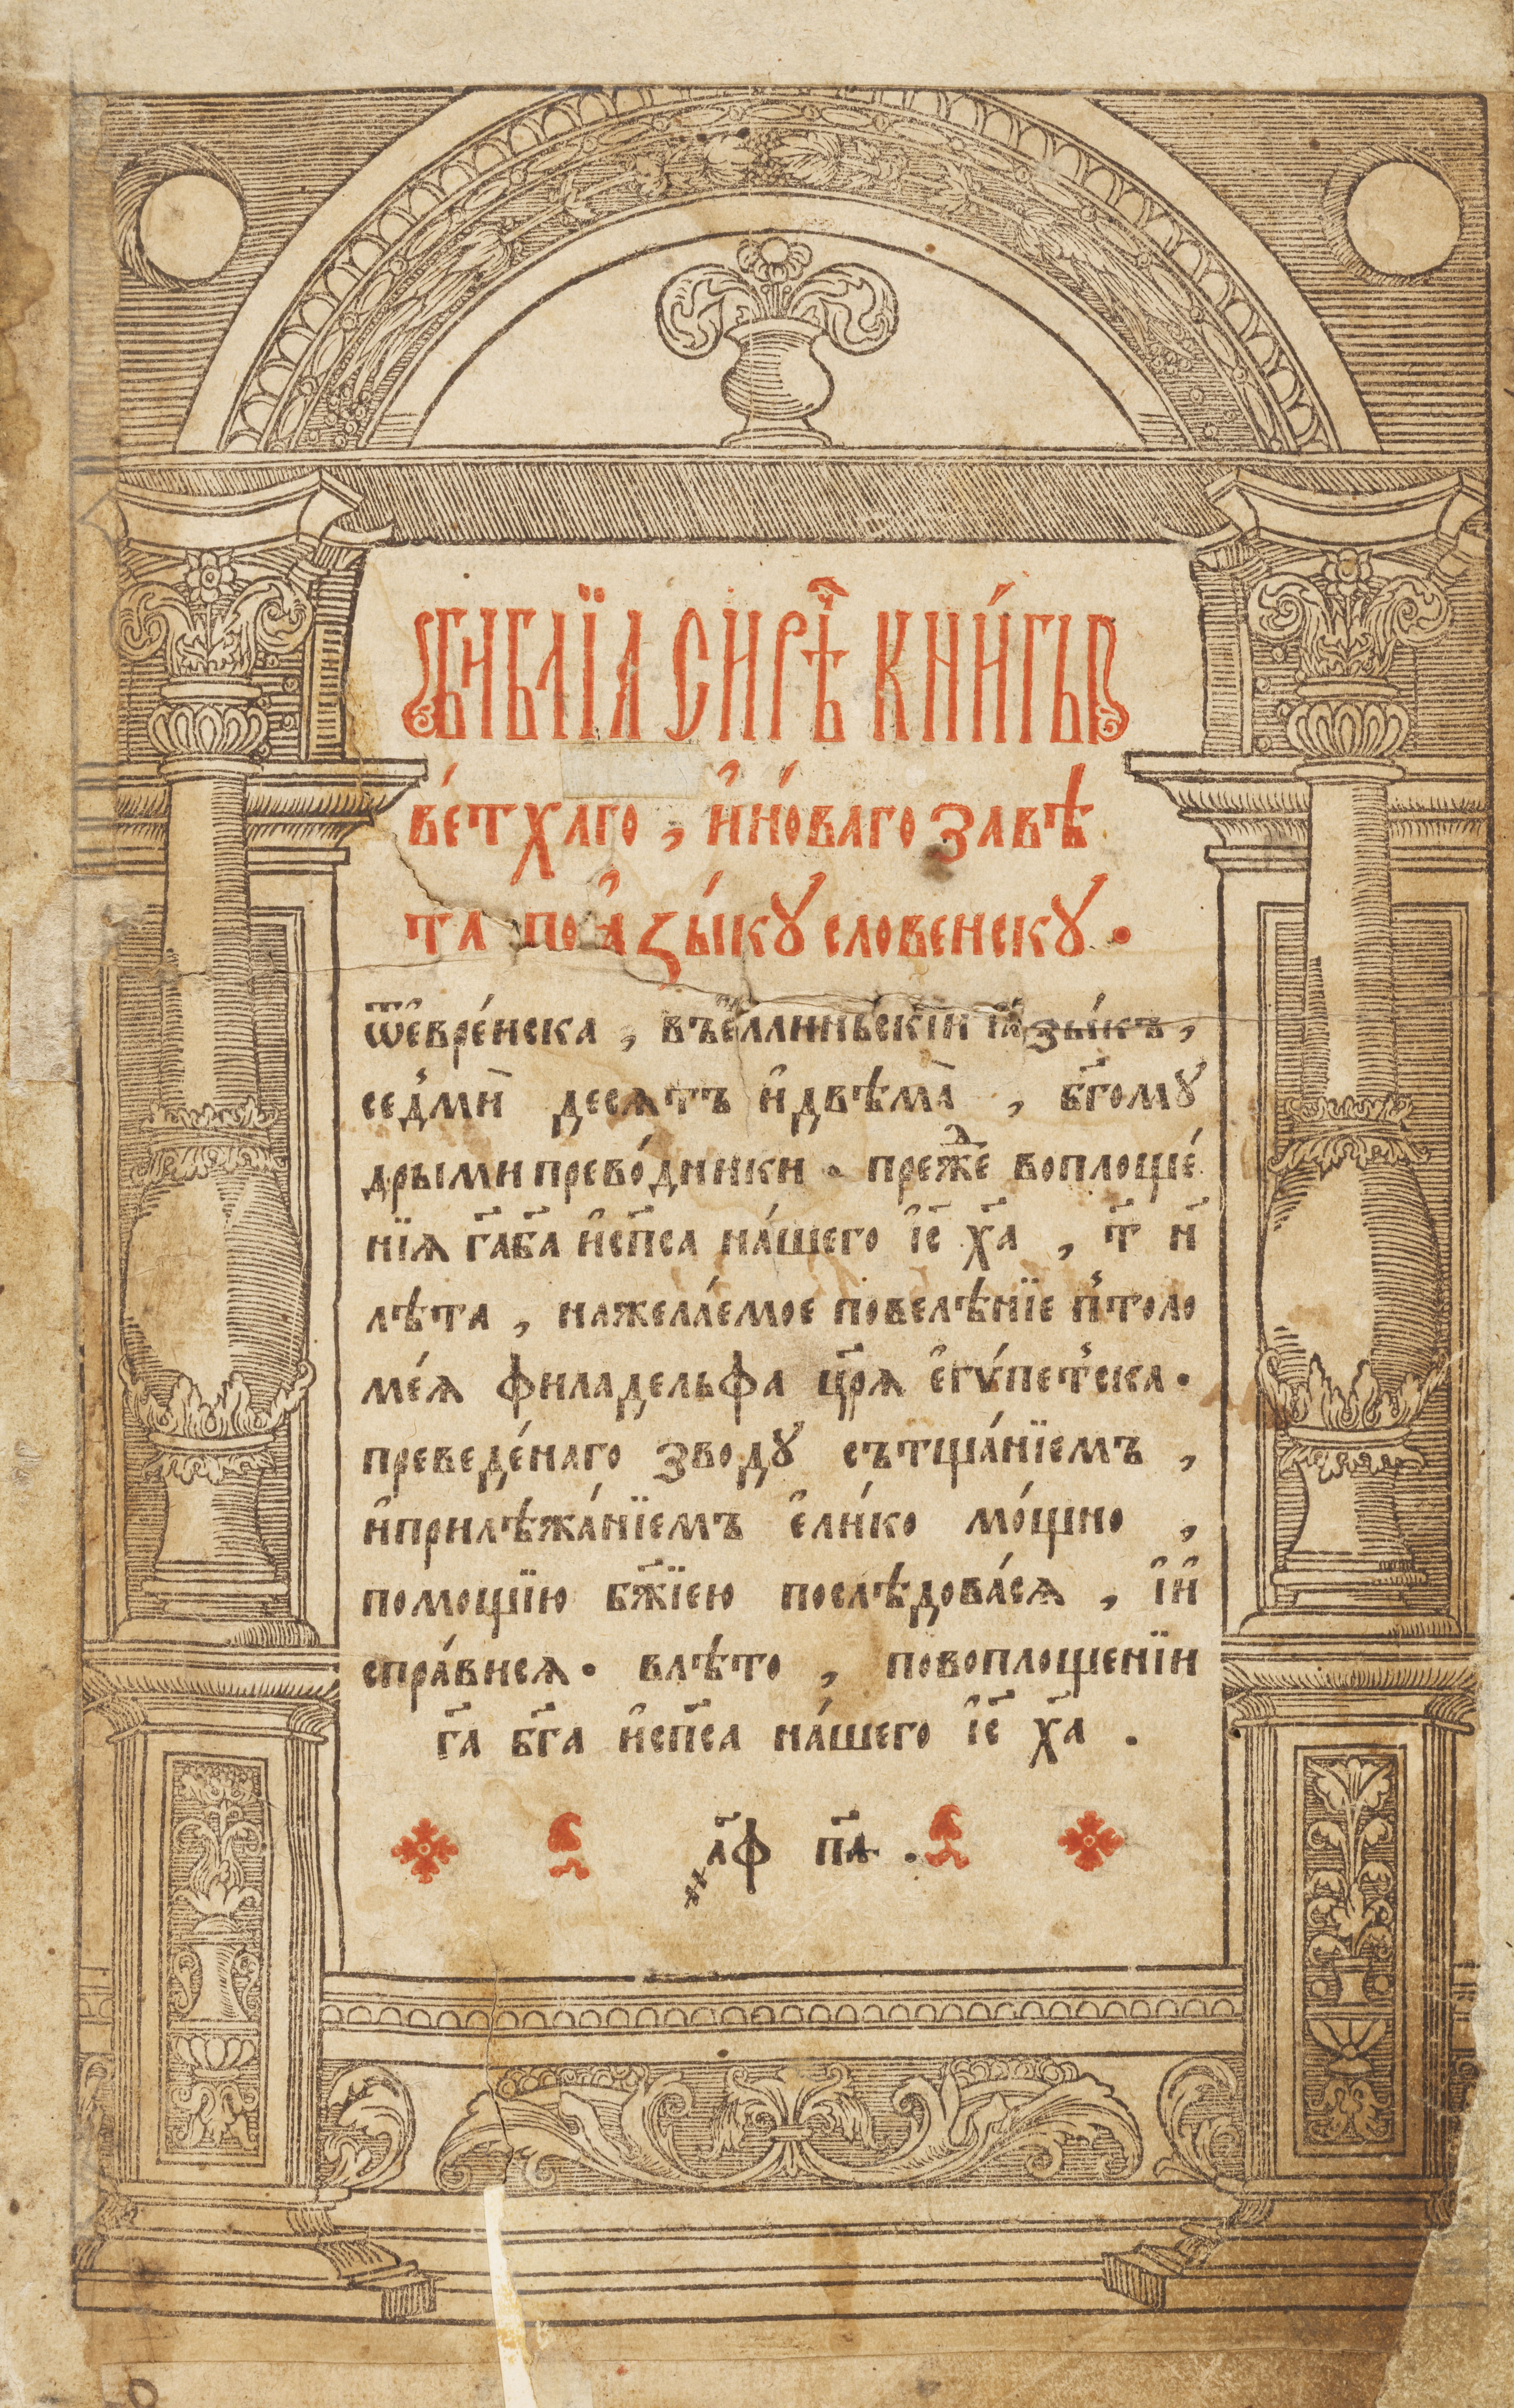 Библїа сирѣ҃ч кни́гы
ве́тхаго , и҆но́ваго завѣ
та по ꙗ҆зы́кꙋ словенскꙋ .
ѿе҆вре́йска , въе҆ллиньскїи ꙗ҆зы́къ ,
сед̾мй десѧтъ и҆двѣма̀ , бг҃омꙋ
дрыми прево́дники . преж̾де воплоще́
нїѧ га҃ба҃ и҆сп҃са на́шего і҆с҃ х҃а , т҃ н҃
лѣта , нажела́емое повелѣ́нїе п̾толо
ме́ѧ филадельфа цр҃ѧ е҆гѵ́пет̾ска .
преведе́наго зводꙋ сътща́нїемъ ,
и҆прилѣжа́нїемъ е҆ли́ко мо́щно ,
помощїю бж҃їею послѣдова́сѧ , і҆и҆
спра́висѧ . влѣ́то , повоплощенїи
г҃а бг҃а и҆сп҃са на́шего і҆с҃ х҃а .
҂а҃ф п҃а .